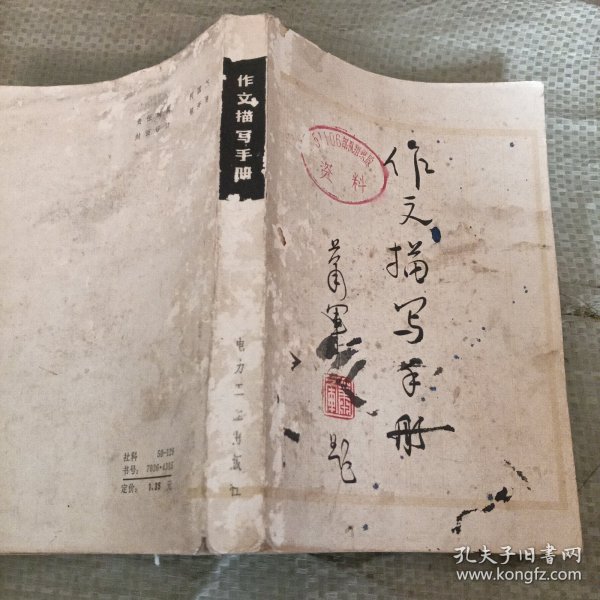 作文描写手册
萧军
题
资料
作文描写手册
电力工业出版社
责任编辑
封面设计
社科 50-129
书号: 7036·4315
定价: 1.35 元
孔夫子旧书网
www.kongfz.com